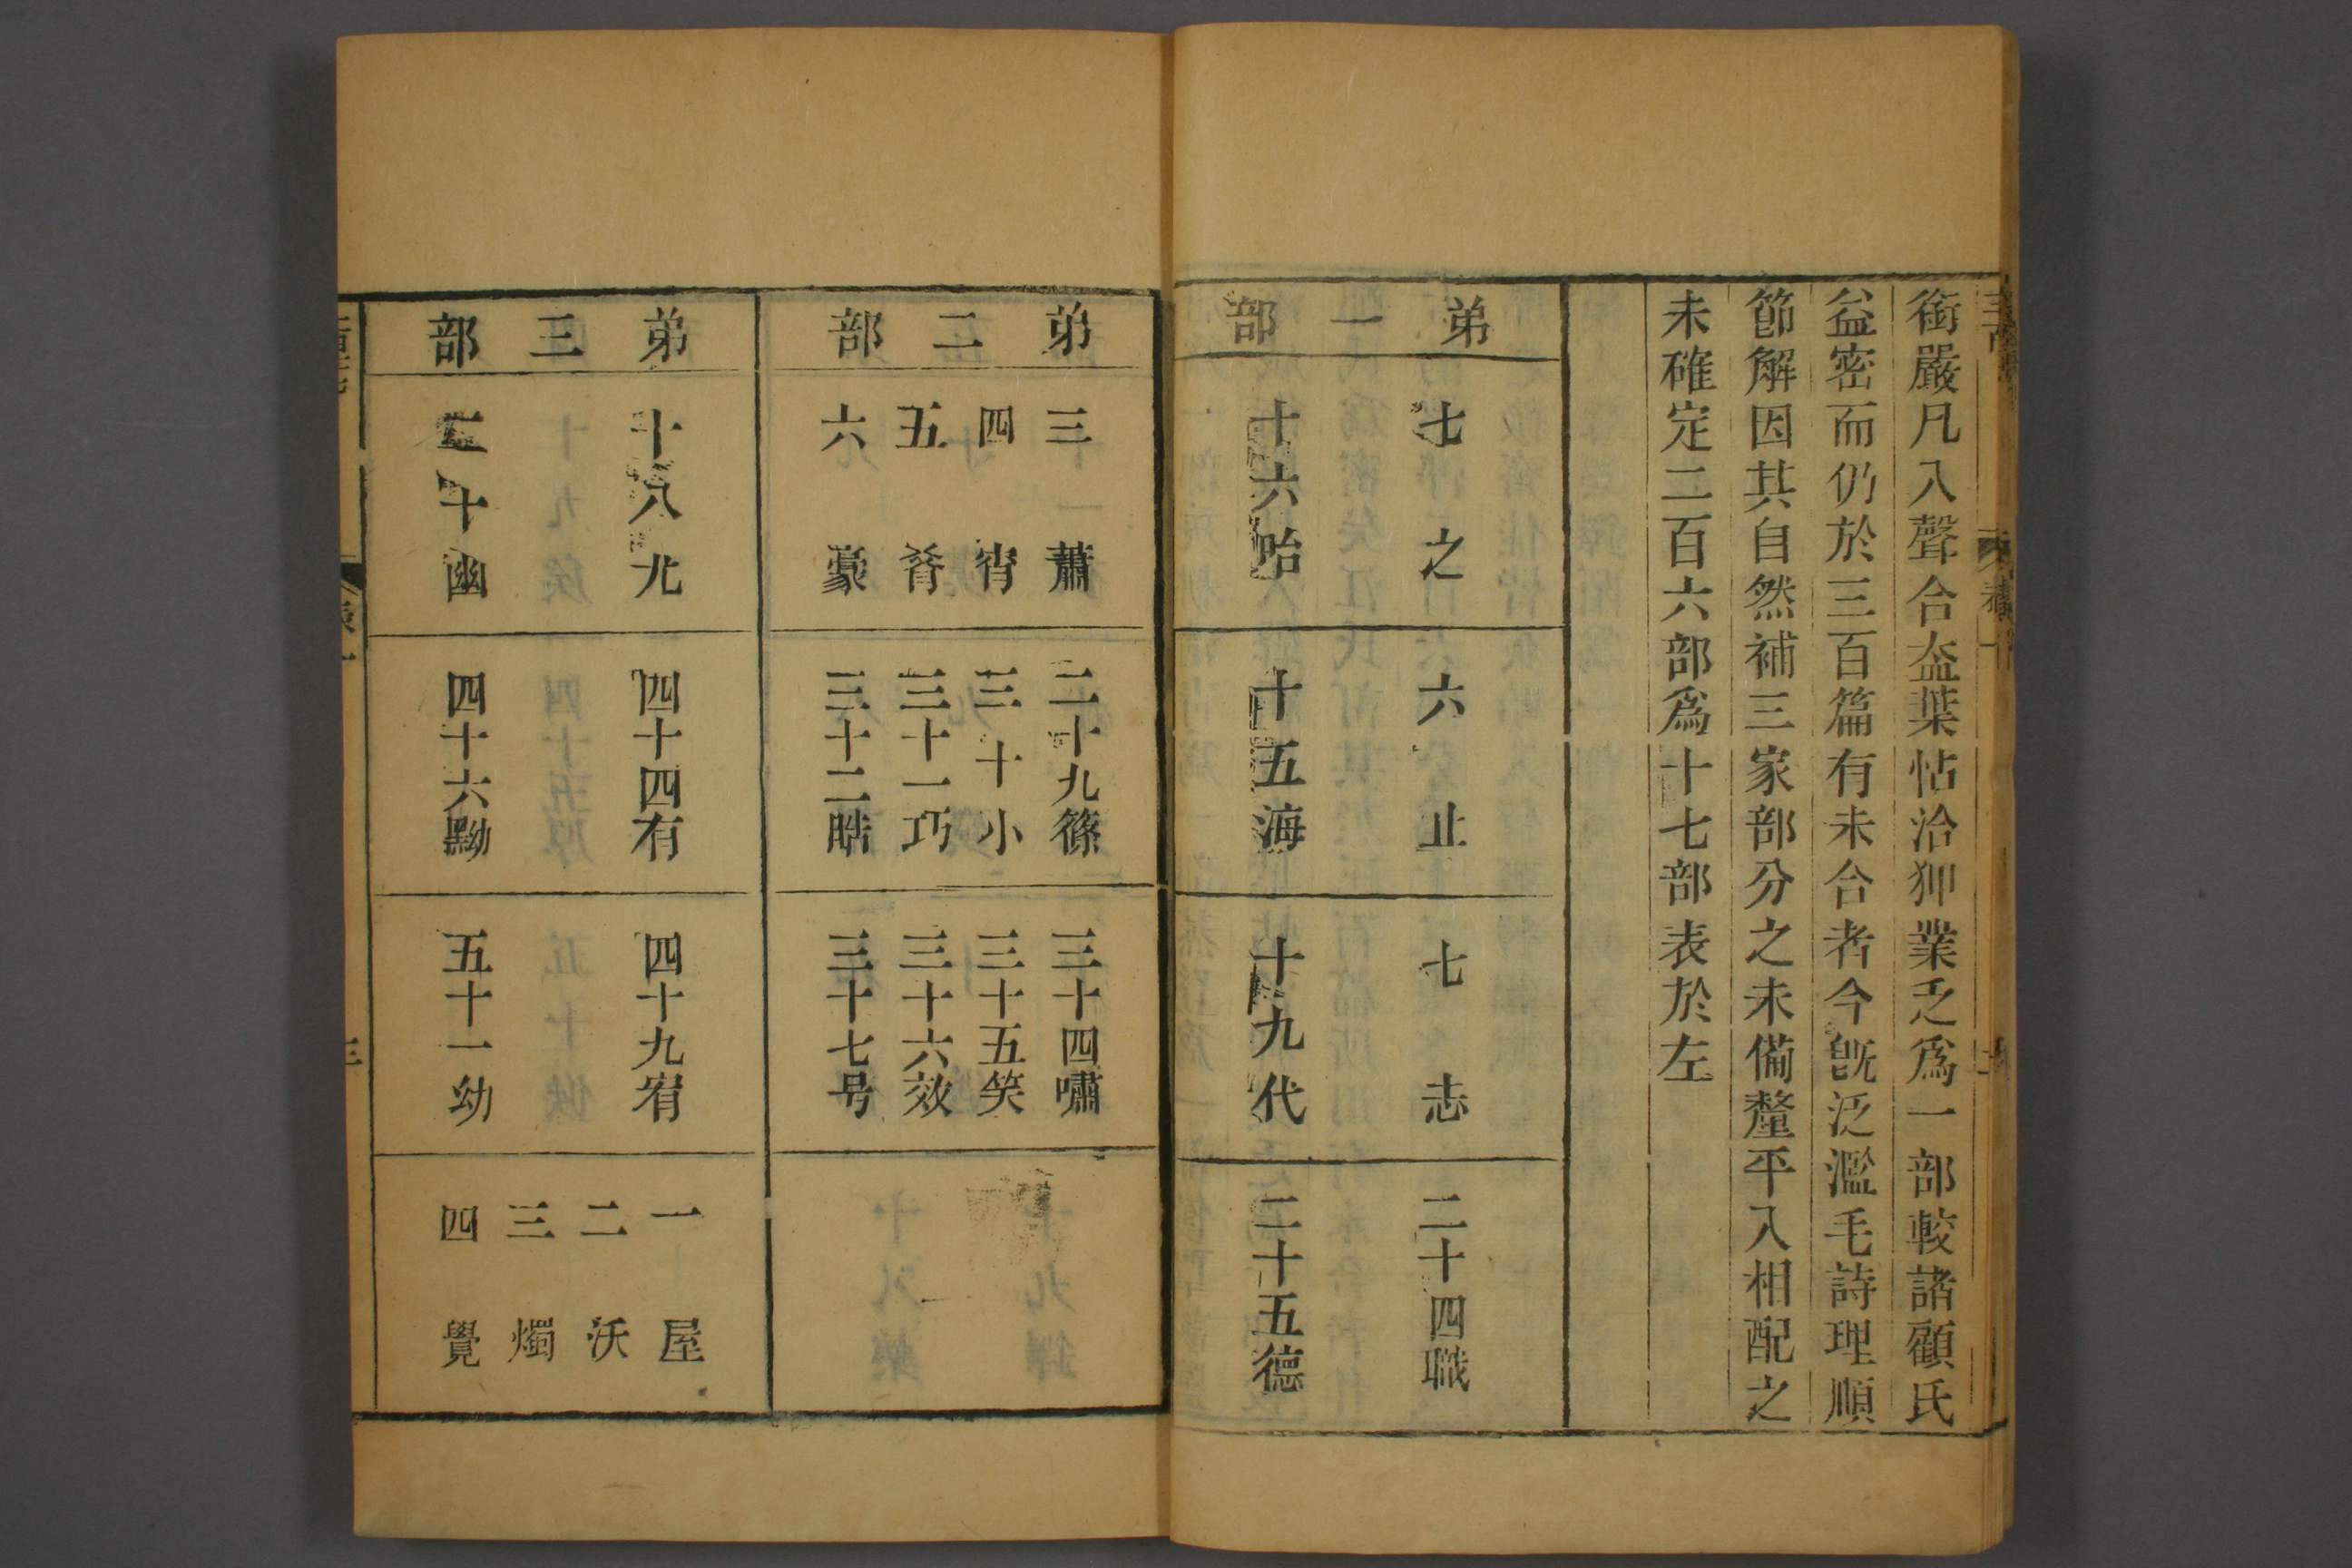 銜嚴凡入聲合盍葉帖洽狎業乏爲一部較諸顧氏
益密而仍於三百篇有未合者今旣泛濫毛詩理順
節解因其自然補三家部分之未備釐平入相配之
未確定二百六部爲十七部表於左
弟一部
七之
十六咍
六止
十五海
七志
十九代
二十四職
二十五德
弟二部
三蕭
四宵
五肴
六豪
二十九篠
三十小
三十一巧
三十二晧
三十四嘯
三十五笑
三十六效
三十七号
弟三部
十八尤
二十幽
四十四有
四十六黝
四十九宥
五十一幼
一屋
二沃
三燭
四覺
表一
三